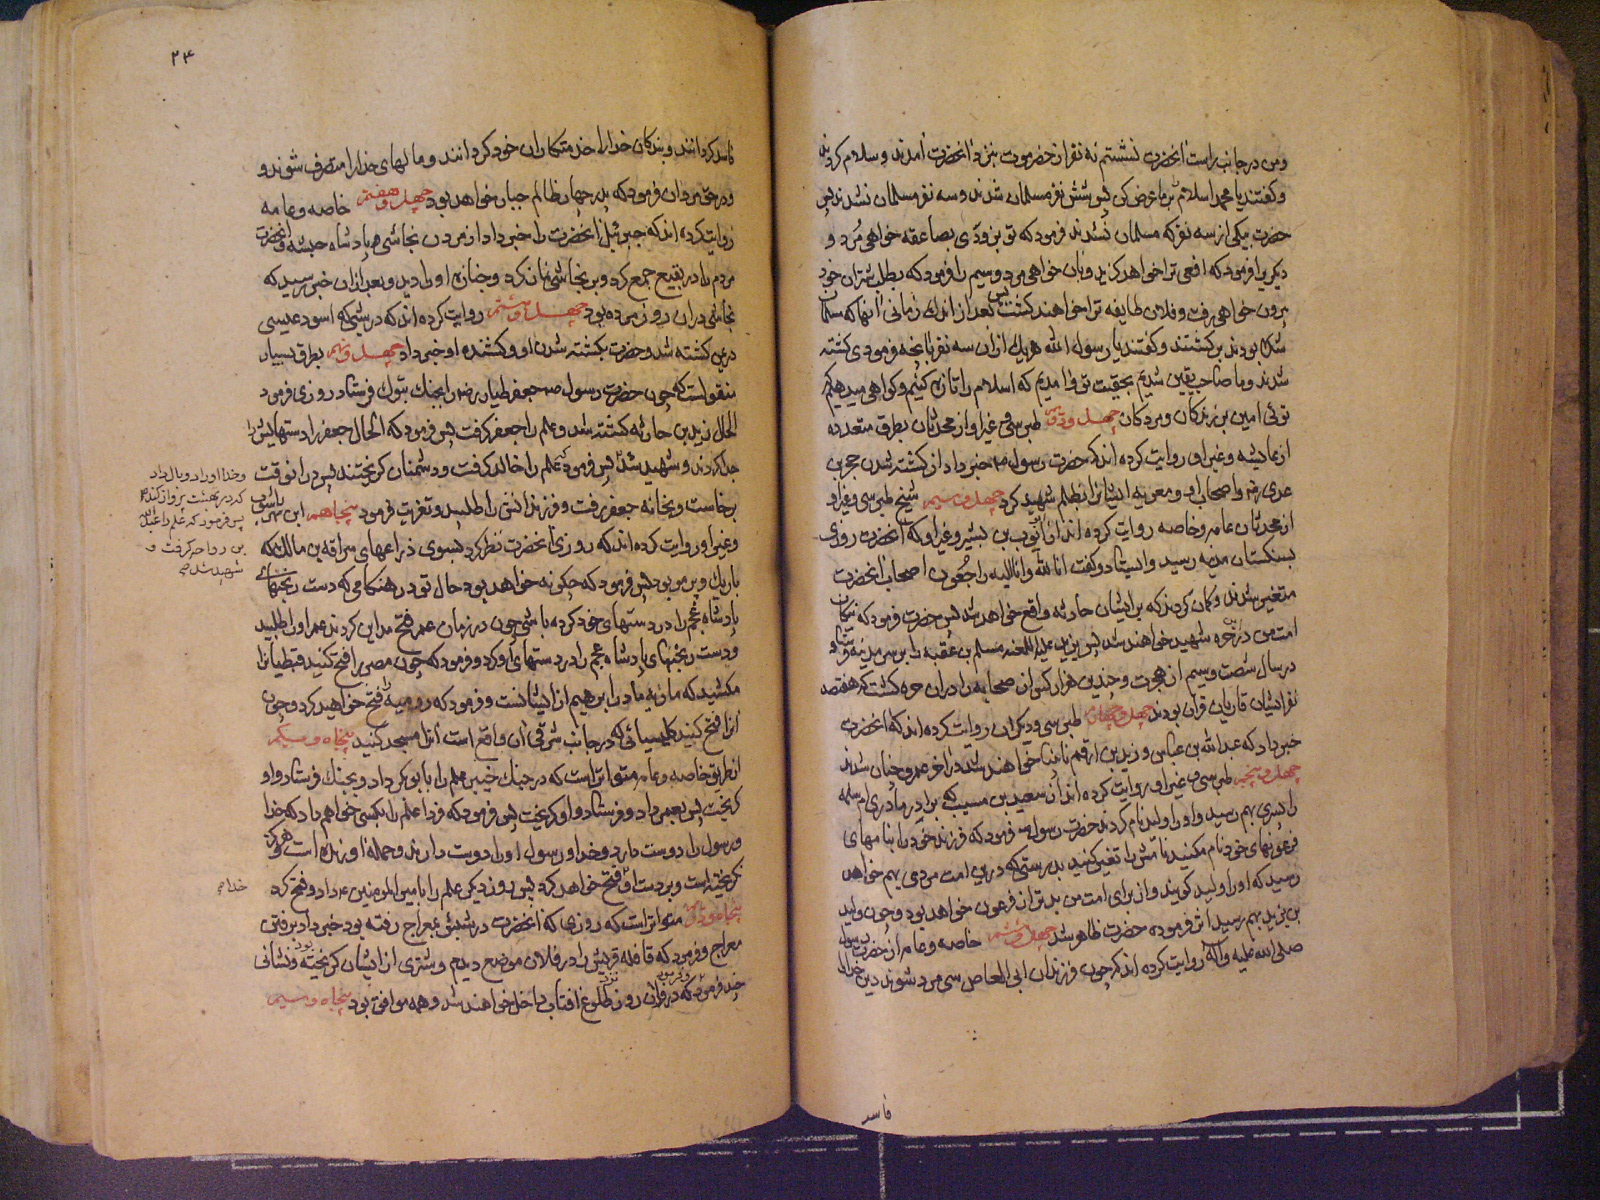 ومن در جانب راست انحضرت نشستم نه نفر از حضرموت بنزد انحضرت امدند و سلام کردند
و گفتند یا محمد اسلام بر ما عرض کن پس شش نفر مسلمان شدند و سه نفر مسلمان نشدند پس
حضرت بیکی از سه نفر که مسلمان نشدند فرمود که تو بزودی بصاعقه خواهی مرد و
دیکریرا فرمود که افعی ترا خواهد کزید و بان خواهی مرد و سیم را فرمود که بطلب شتران خود
بیرون خواهی رفت و فلان طایفه ترا خواهند کشت پس بعد از اندک زمانی انها که مسلمان
شده بودند بر کشتند و کفتند یا رسول الله هر یک ازان سه نفر بانچه فرمودی کشته
شدند و ما صاحب یقین شدیم بحقیت تو و امدیم که اسلام را تازه کنیم و کواهی میدهیم که
توئی امین بر زندکان و مردکان چهل و دوم طبرسی و غیر او از محدثان بطرق متعدده
از عایشه و غیر او روایت کرده اند که حضرت رسول ص خبر داد از کشته شدن حجر بن
عدی رض و اصحاب او و معویه ایشانرا بظلم شهید کرد چهل و سیم شیخ طبرسی و غیر او
از محدثان عامه و خاصه روایت کرده اند از ایوب بن بشیر و غیر او که انحضرت روزی
بسنکستان مدینه رسید و ایستاد و کفت انا لله و انا الیه راجعون اصحاب انحضرت
متغیر شدند و کمان کردند که بر ایشان حادثه واقع خواهد شد پس حضرت فرمود که نیکان
امت من در حره شهید خواهند شد پس یزید علیه اللعنه مسلم بن عقبه را بر سر مدینه فرستاد
در سال شصت و سیم از هجرت و چندین هزار کس از صحابه را در ان حره کشت که هفتصد
نفر ایشان قاریان قران بودند چهل و چهارم طبرسی و دیکران روایت کرده اند که انحضرت
خبر داد که عبد الله بن عباس و زید بن ارقم نابینا خواهند شد در اخر عمر و چنان شدند
چهل و پنجم طبرسی و غیر او روایت کرده اند از سعید بن مسیب که برادر مادری ام سلمه
را پسری بهم رسید و او را ولید نام کردند حضرت رسول ص فرمود که فرزند خود را بنامهای
فرعونهای خود نام میکنید نامش را تغییر کنید بدرستی که درین امت مردی بهم خواهد
رسید که او را ولید کویند و از برای امت من بدتر از فرعون خواهد بود و چون ولید
بن یزید بهم رسید اثر فرموده حضرت ظاهر شد چهل و ششم خاصه و عامه از حضرت رسول
صلی الله علیه و آله روایت کرده اند که چون فرزندان ابی العاص سی مرد شوند دین خدا را
فاسد
۲۴
فاسد کردانند و بندکان خدا را خدمتکاران خود کردانند و مالهای خدا را متصرف شوند و
و در حق مروان فرمود که پدر چهار ظالم جبار خواهد بود چهل و هفتم خاصه و عامه
روایت کرده اند که جبرئیل انحضرت را خبر داد از مردن نجاشی پادشاه حبشه و انحضرت
مردم را در بقیع جمع کرد و بر نجاشی نماز کرد و جنازه او را دید و بعد ازان خبر رسید که
نجاشی دران روز مرده بود چهل و هشتم روایت کرده اند که در شبی که اسود عنسی
در یمن کشته شد و حضرت بکشته شدن او و کشنده او خبر داد چهل و نهم بطرق بسیار
منقولست که چون حضرت رسول ص جعفر طیار رض را بجنک بتبوک فرستاد روزی فرمود
الحال زید بن حارثه کشته شد و علم را جعفر کرفت پس فرمود که الحال جعفر را دستهایش را
جدا کردند و شهید شد پس فرمود که علم را خالد کرفت و دشمنان کریختند پس در انوقت
وخدا او را دو بال داد
که در بهشت پرواز کند
پس فرمود که علم را عبد الله
بن رواحه کرفت و
شهید شد ص
برخاست و بخانه جعفر رفت و فرزندانش را طلبید و تعزیت فرمود پنجاهم ابن شهر اشوب
و غیر او روایت کرده اند که روزی انحضرت نظر کرد بسوی ذراعهای سراقه بن مالک که
باریک و پر مو بود پس فرمود که چکونه خواهد بود حال تو در هنکامی که دست رنجهای
پادشاه عجم را در دستهای خود کرده باشی چون در زمان عمر فتح مداین کردند عمر او را طلبید
و دست رنجهای پادشاه عجم را در دستهای او کرد و فرمود که چون مصر را فتح کنید قبطیانرا
مکشید که ماریه مادر ابراهیم از ایشانست و فرمود که رومیه را فتح خواهید کرد و چون
انرا فتح کنید کلیسیائی که در جانب شرقی ان واقع است انرا مسجد کنید پنجاه و یکم
از طریق خاصه و عامه متواتر است که در جنک خیبر علم را بابو بکر داد و بجنک فرستاد و او
کریخت پس بعمر داد و فرستاد و او کریخت پس فرمود که فردا علم را بکسی خواهم داد که خدا
و رسول را دوست دارد و خدا و رسول او را دوست دارند و حمله اورنده است و هرکز
نکریخته است و بر دست او فتح خواهد کرد پس روز دیکر علم را بامیر المومنین ع داد و فتح کرد
خدا ص
پنجاه و دوم متواتر است که روزی که انحضرت در شبش بمعراج رفته بود خبر داد برفتن
معراج و فرمود که قافله قریش را در فلان موضع دیدم و شتری از ایشان کریخته بود و نشانی
چند فرمود و فرمود که در فلان روز نزد طلوع افتاب داخل خواهند شد و همه موافق بود پنجاه و سیم